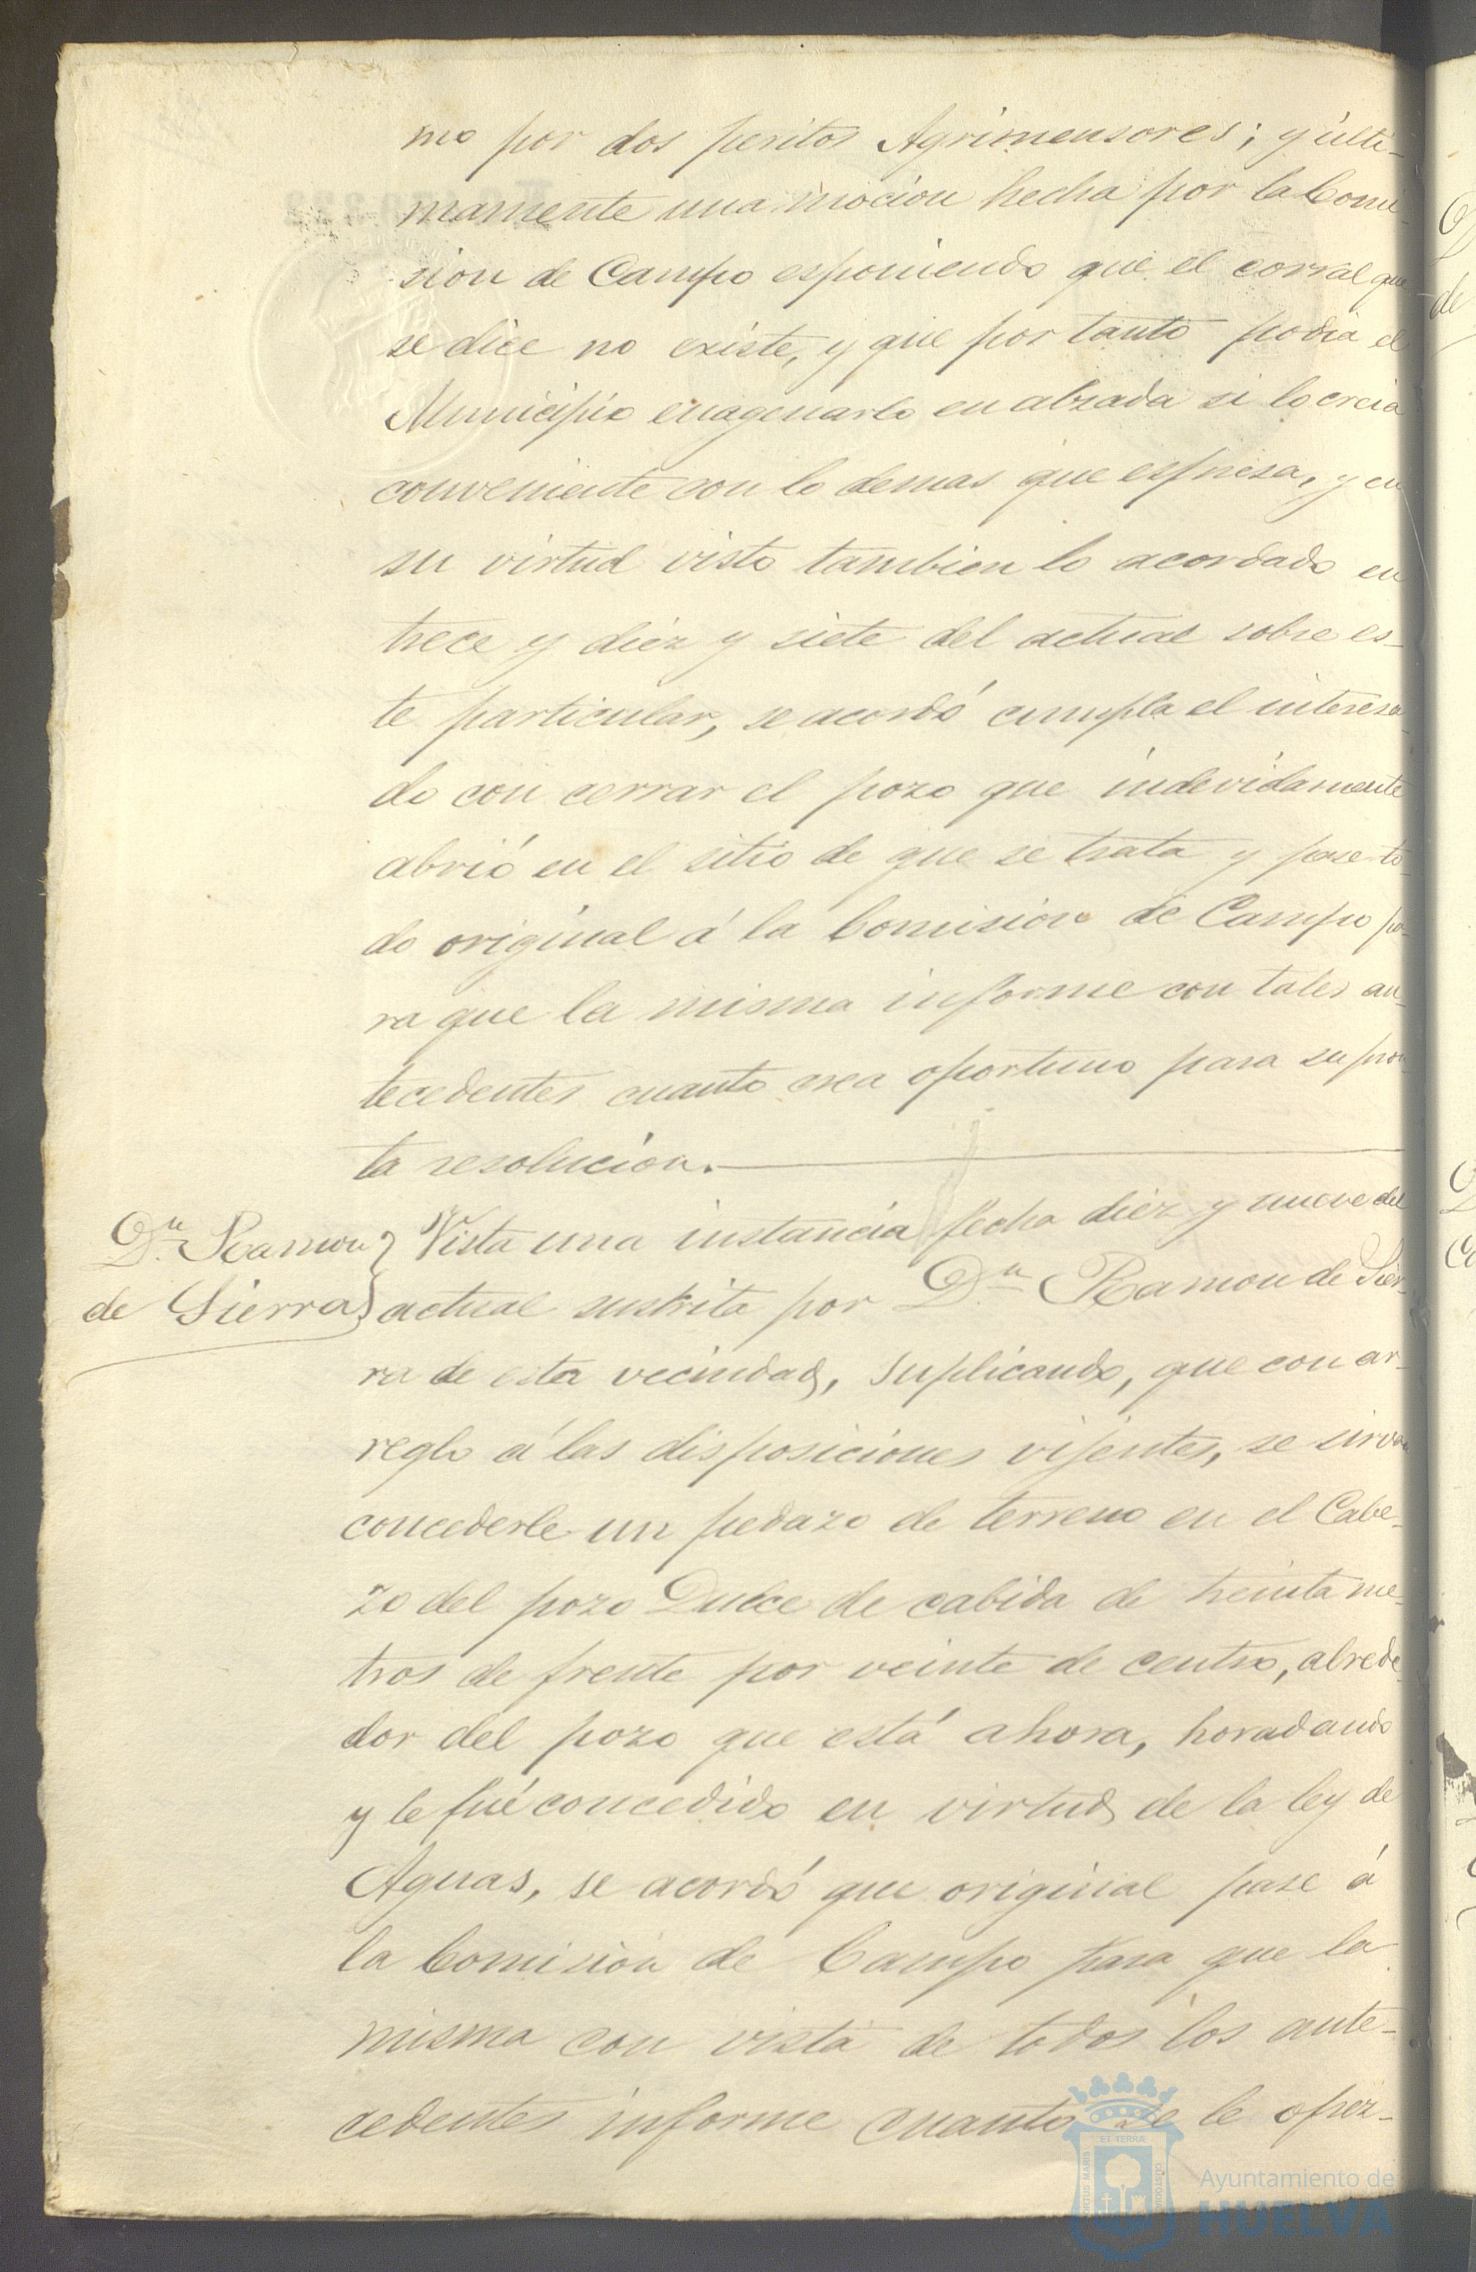 mo por dos peritos Agrimensores; y ulti-
mamente una mocion hecha por la Comi-
sion de Campo esponiendo que el corral que
se dice no existe, y que por tanto podia el
Municipio enagenarlo en alzada si lo creia
conveniente con lo demas que espresa, y en
su virtud visto tambien lo acordado en
trece y diez y siete del actual sobre es-
te particular, se acordó cumpla el interesa-
do con cerrar el pozo que indevidamente
abrió en el sitio de que se trata y pase to-
do original á la Comision de Campo pa-
ra que la misma informe con tales an-
tecedentes cuanto crea oportuno para su pron-
ta resolucion.
Dn. Ramon
de Sierra
Vista una instancia fecha diez y nueve del
actual suskrita por Dn. Ramon de Sier-
ra de esta vecindad, suplicando, que con ar-
reglo á las disposiciones vijentes, se sirva
concederle un pedazo de terreno en el Cabe-
zo del pozo Dulce de cabida de treinta me-
tros de frente por veinte de centro, alrede-
dor del pozo que está ahora, horadando
y le fué concedido en virtud de la ley de
Aguas, se acordó que original pase á
la Comision de Campo para que la
misma con vista de todos los ante-
cedentes informe cuanto se le ofrez-
ET TERRÆ
PORTUS MARIS
CUSTODIA
Ayuntamiento de
HUELVA